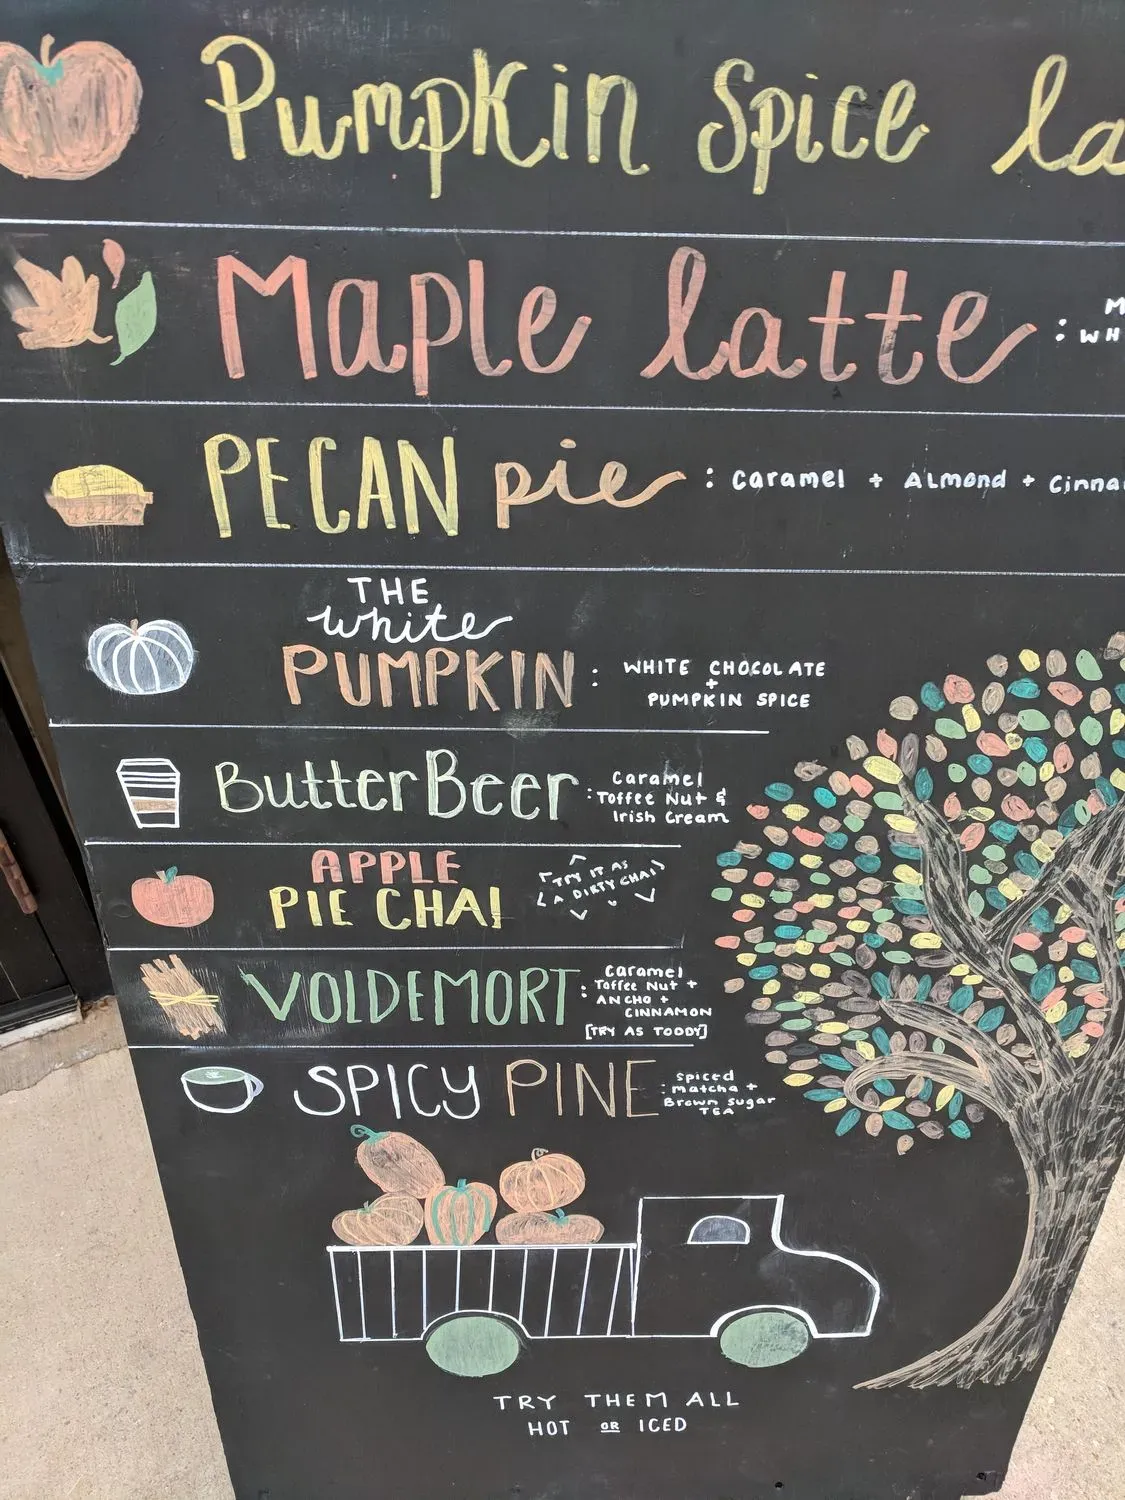 Pumpkin Spice la
Maple latte :
M
WH
PECAN pie : Caramel + ALmond + Cinna
THE
white
PUMPKIN :
WHITE CHOCOLATE
+
PUMPKIN SPICE
Butter Beer :
Caramel
Toffee Nut &
Irish Cream
APPLE
PIE CHAI
TRY IT AS
A DIRTY CHAI
VOLDEMORT :
Caramel
Toffee Nut +
ANCHO +
CINNAMON
[TRY AS TODDY]
SPICY PINE :
Spiced
matcha +
Brown sugar
TEA
TRY THEM ALL
HOT OR ICED